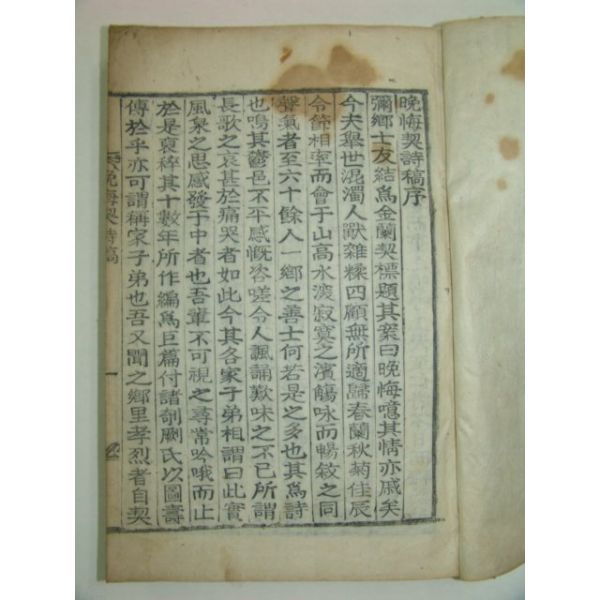 晩悔契詩稿序
彌鄕士友結爲金蘭契標題其案曰晩悔噫其情亦戚矣
今夫擧世混濁人獸雜糅四顧無所適歸春蘭秋菊佳辰
令節相率而會于山高水渡寂寞之濱觴咏而暢敘之同
聲氣者至六十餘人一鄕之善士何若是之多也其爲詩
也鳴其鬱邑不平感慨咨嗟令人諷誦歎味之不已所謂
長歌之哀甚於痛哭者如此今其各家子弟相謂曰此實
風泉之思感發于中者也吾輩不可視之尋常吟哦而止
於是裒稡其十數年所作編爲巨篇付諸剞劂氏以圖壽
傳於乎亦可謂稱家子弟也吾又聞之鄕里孝烈者自契
晩悔契詩稿
一